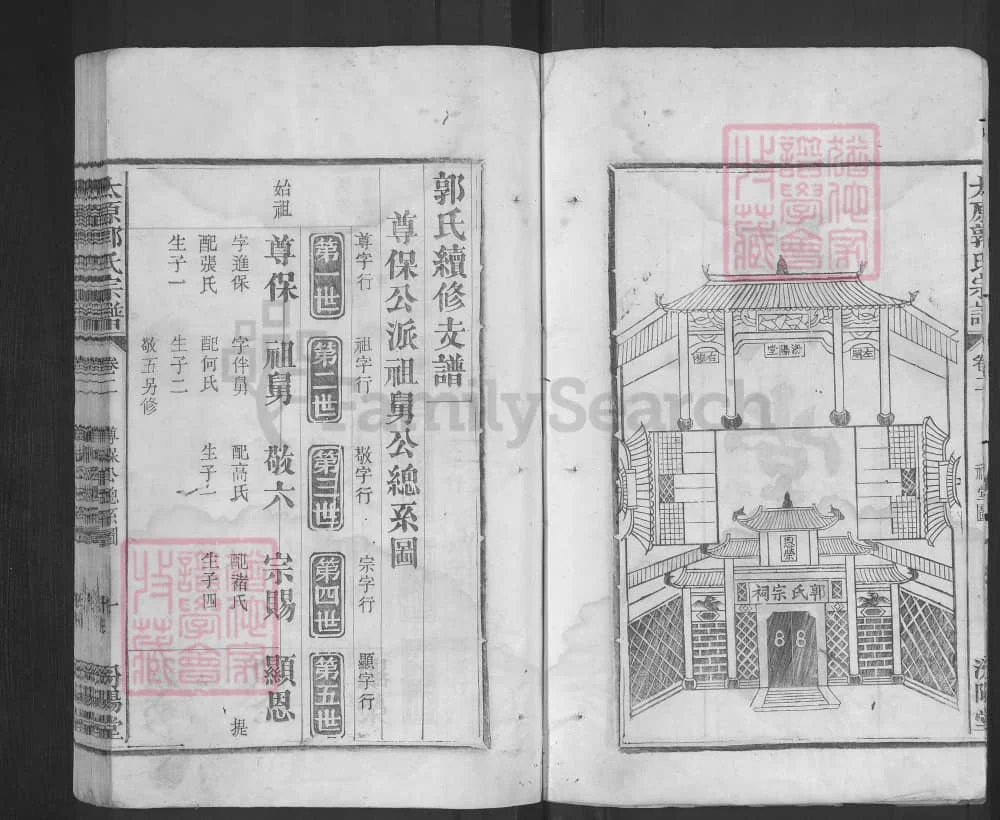 太原郭氏宗譜
卷二
祠堂圖
汾陽堂
汾陽堂
左昭
右穆
恩榮
郭氏宗祠
郭氏續修支譜
尊保公派祖舅公總系圖
尊字行 祖字行 敬字行 宗字行 顯字行
第一世 第二世 第三世 第四世 第五世
始祖
尊保 祖舅 敬六 宗賜 顯恩
字進保 字伴舅 配高氏 配諸氏 提
配張氏 配何氏 生子二 生子四
生子一 生子二
敬五另修
太原郭氏宗譜
卷二
尊保公總系圖
一
汾陽堂
FamilySearch